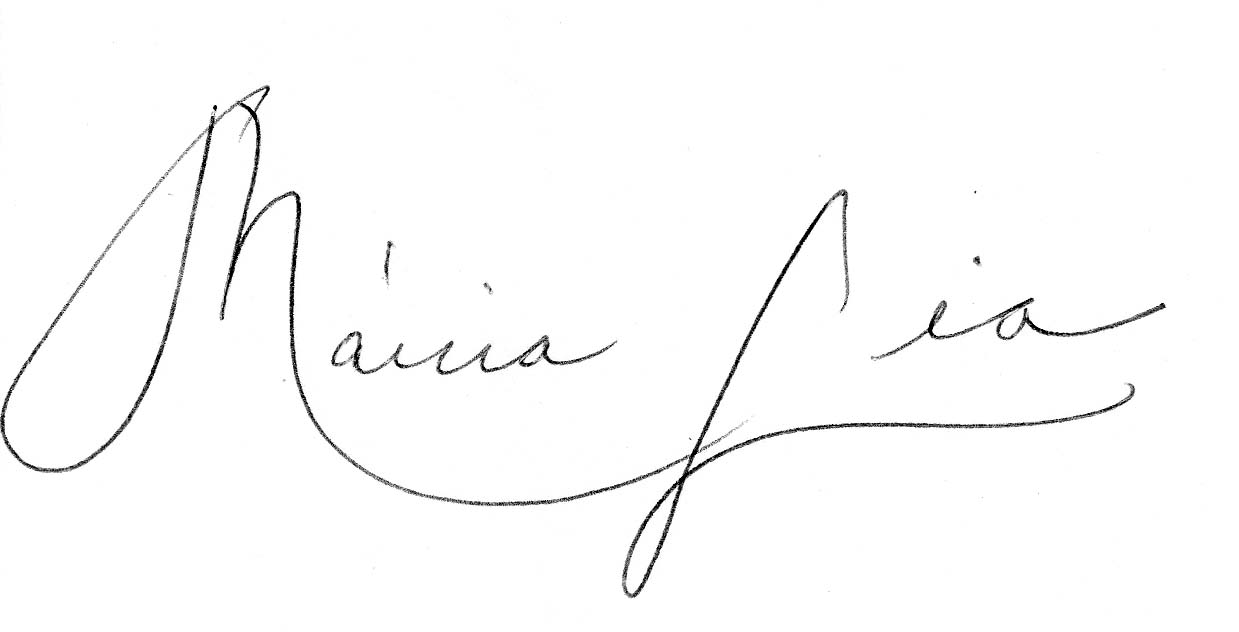 Márcia Lia